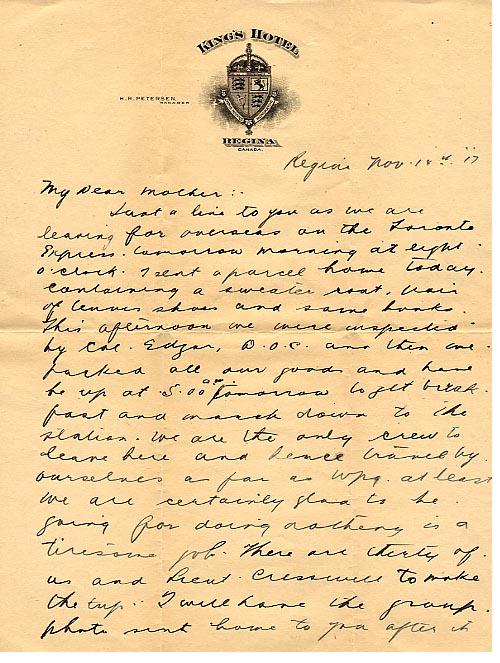 KING'S HOTEL
H.R. PETERSEN,
MANAGER
REGINA
CANADA.
Regina Nov. 18th. 17
My Dear Mother:.
Just a line to you as we are
leaving for overseas on the Toronto
Express. tomorrow morning at eight
o'clock. I sent a parcel home today.
containing a sweater coat, pair
of tennis shoes and some books.
This afternoon we were inspected
by Col. Edgar, D.O.C. and then we
packed all our goods and have
to be up at 5.00 am tomorrow to get break-
fast and march down to the
station. We are the only crew to
leave here and hence travel by
ourselves as far as Wpg. at least
We are certainly glad to be
going for doing nothing is a
tiresome job. There are thirty of
us and Lieut. Cresswell to make
the trip. I will have the group
photo sent home to you after it